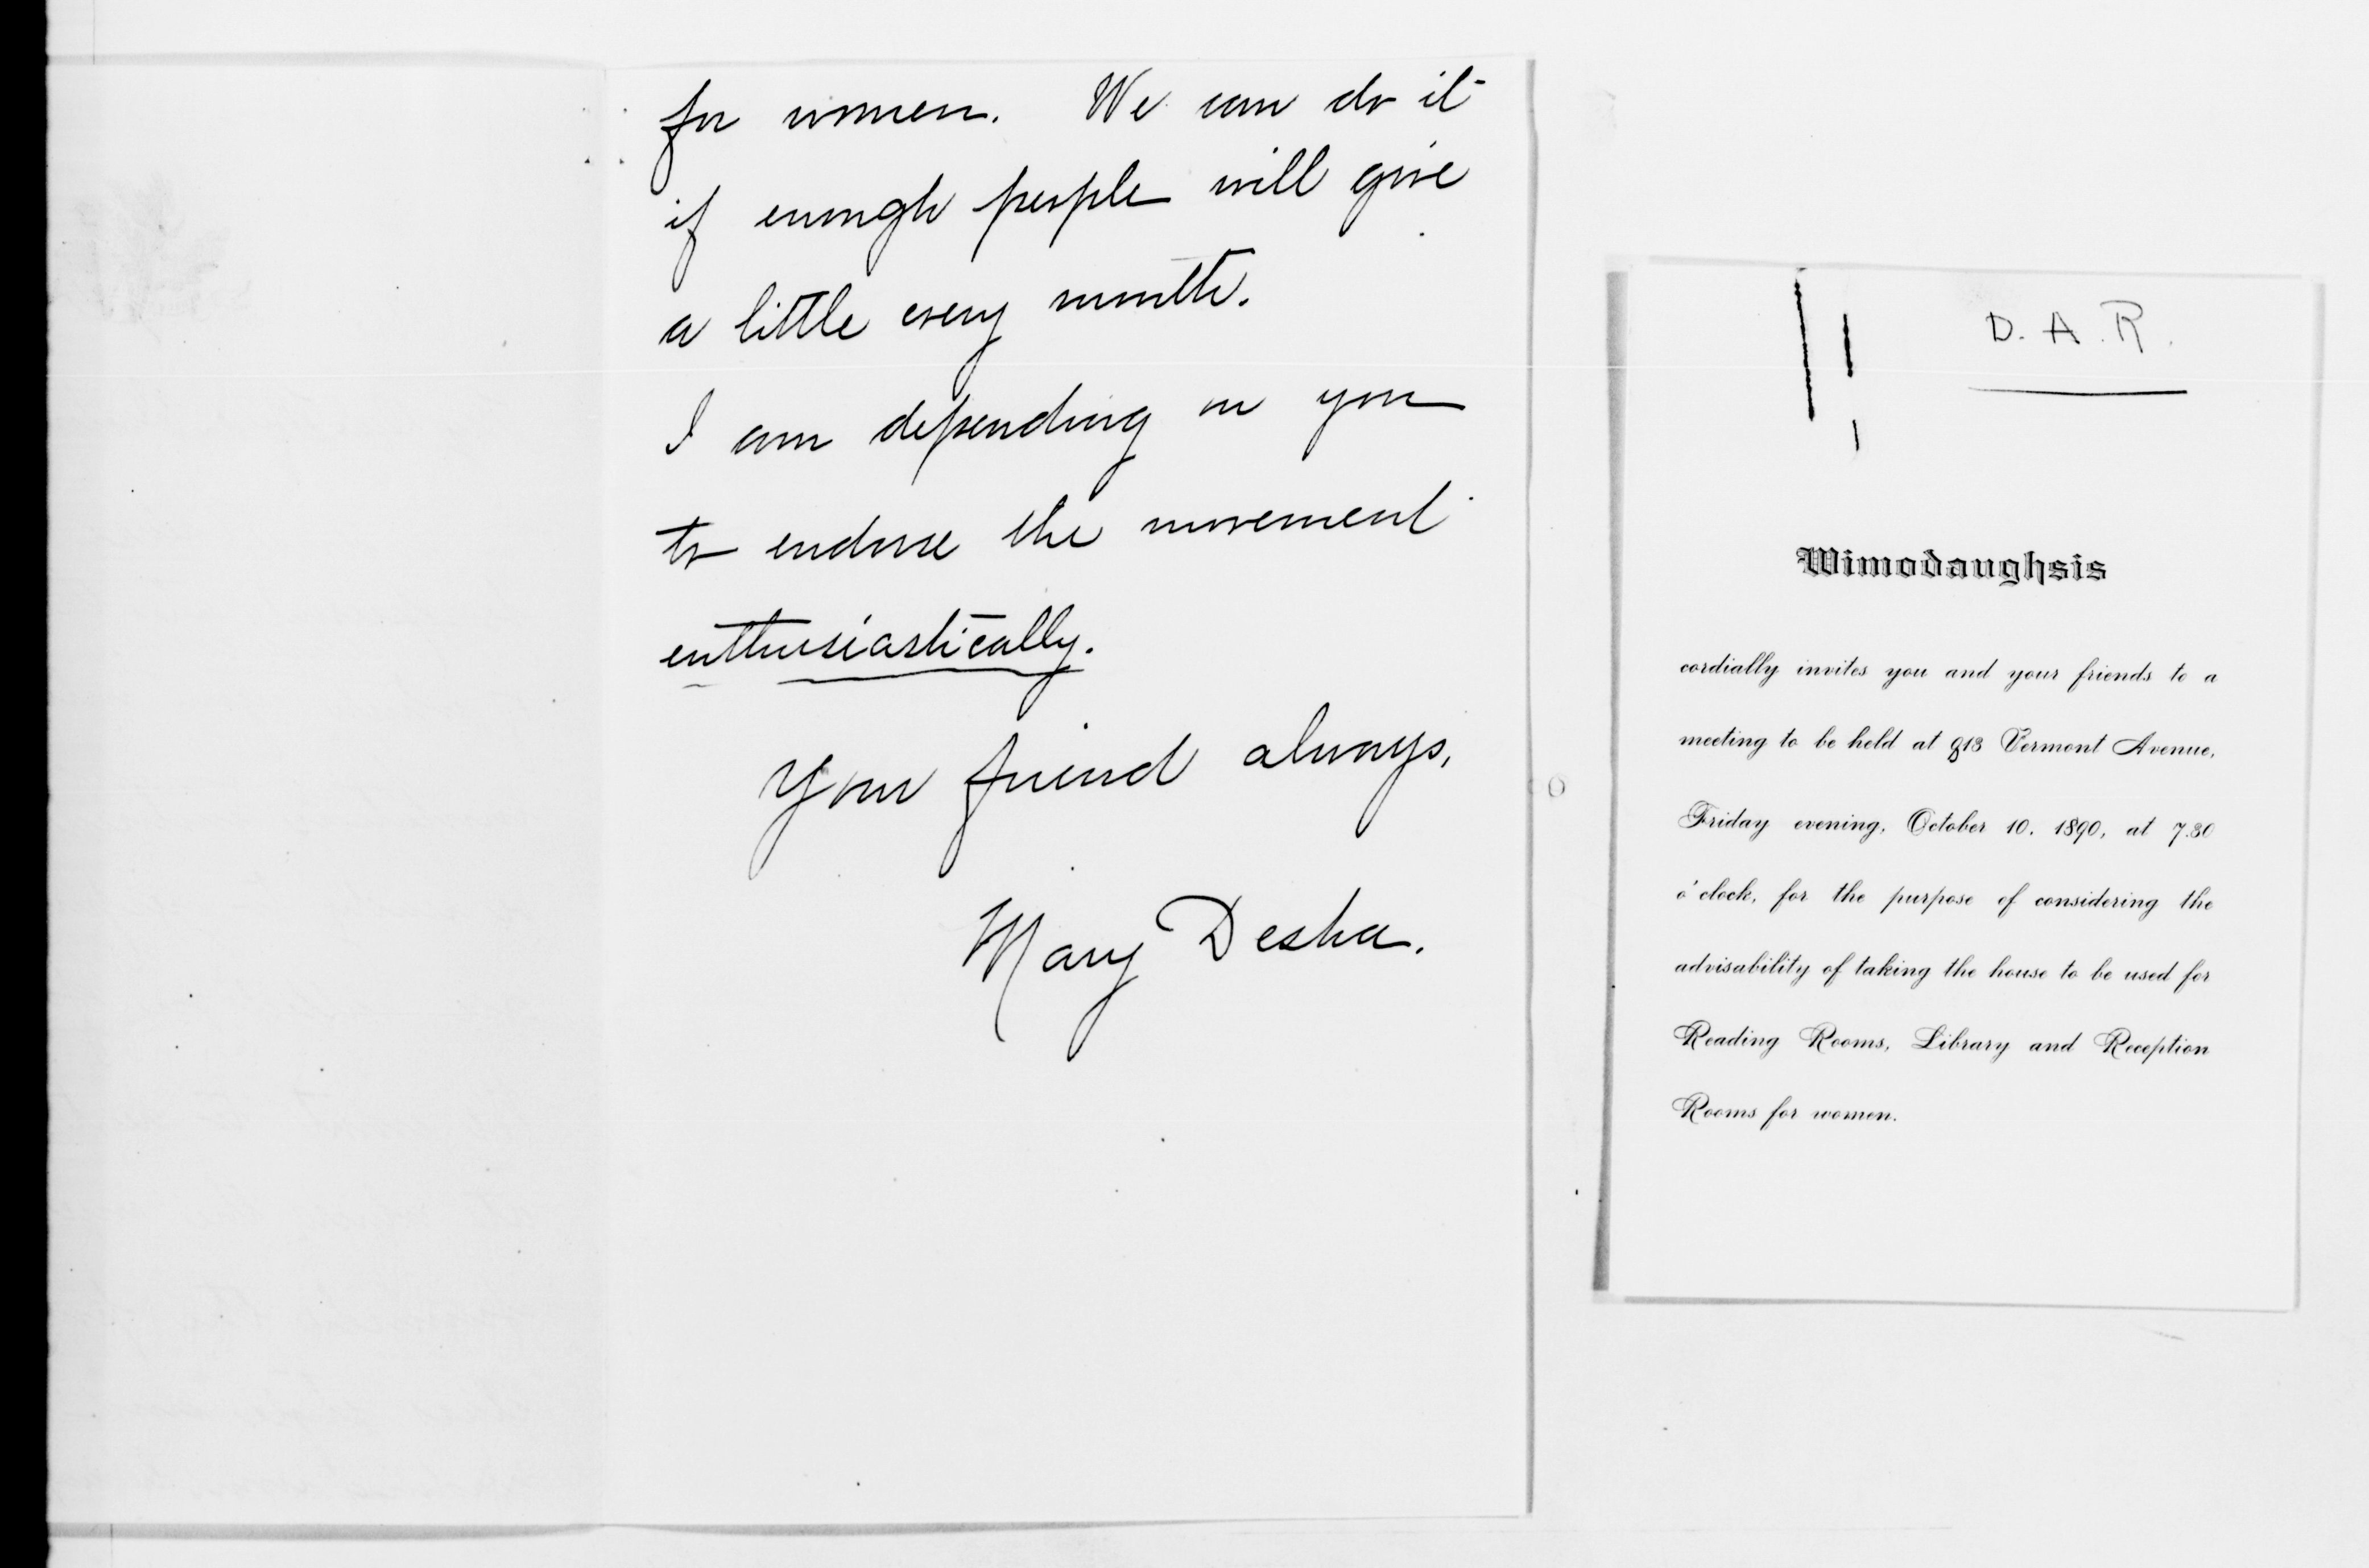 for women. We can do it
if enough people will give
a little every month.
I am depending on you
to endorse the movement
enthusiastically.
Your friend always,
Mary Desha.
D. A. R.
Wimodaughsis
cordially invites you and your friends to a
meeting to be held at 913 Vermont Avenue,
Friday evening, October 10, 1890, at 7.30
o'clock, for the purpose of considering the
advisability of taking the house to be used for
Reading Rooms, Library and Reception
Rooms for women.